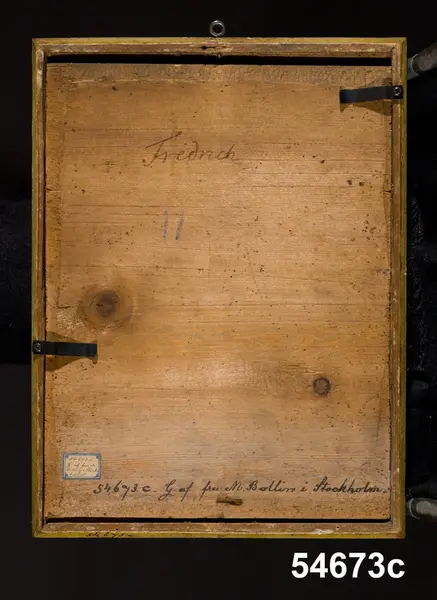 Fredrich
11
54673 c. G. af fru M. Bollin i Stockholm.
54673c